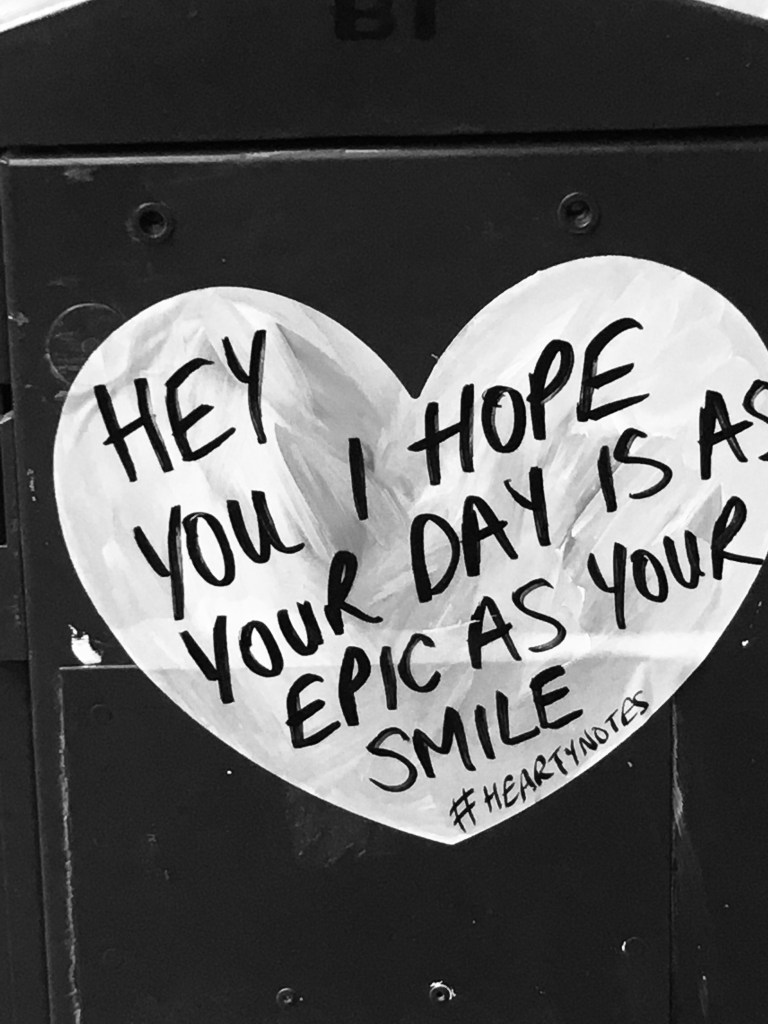 BI
HEY
YOU I HOPE
YOUR DAY IS AS
EPIC AS YOUR
SMILE
#HEARTYNOTES